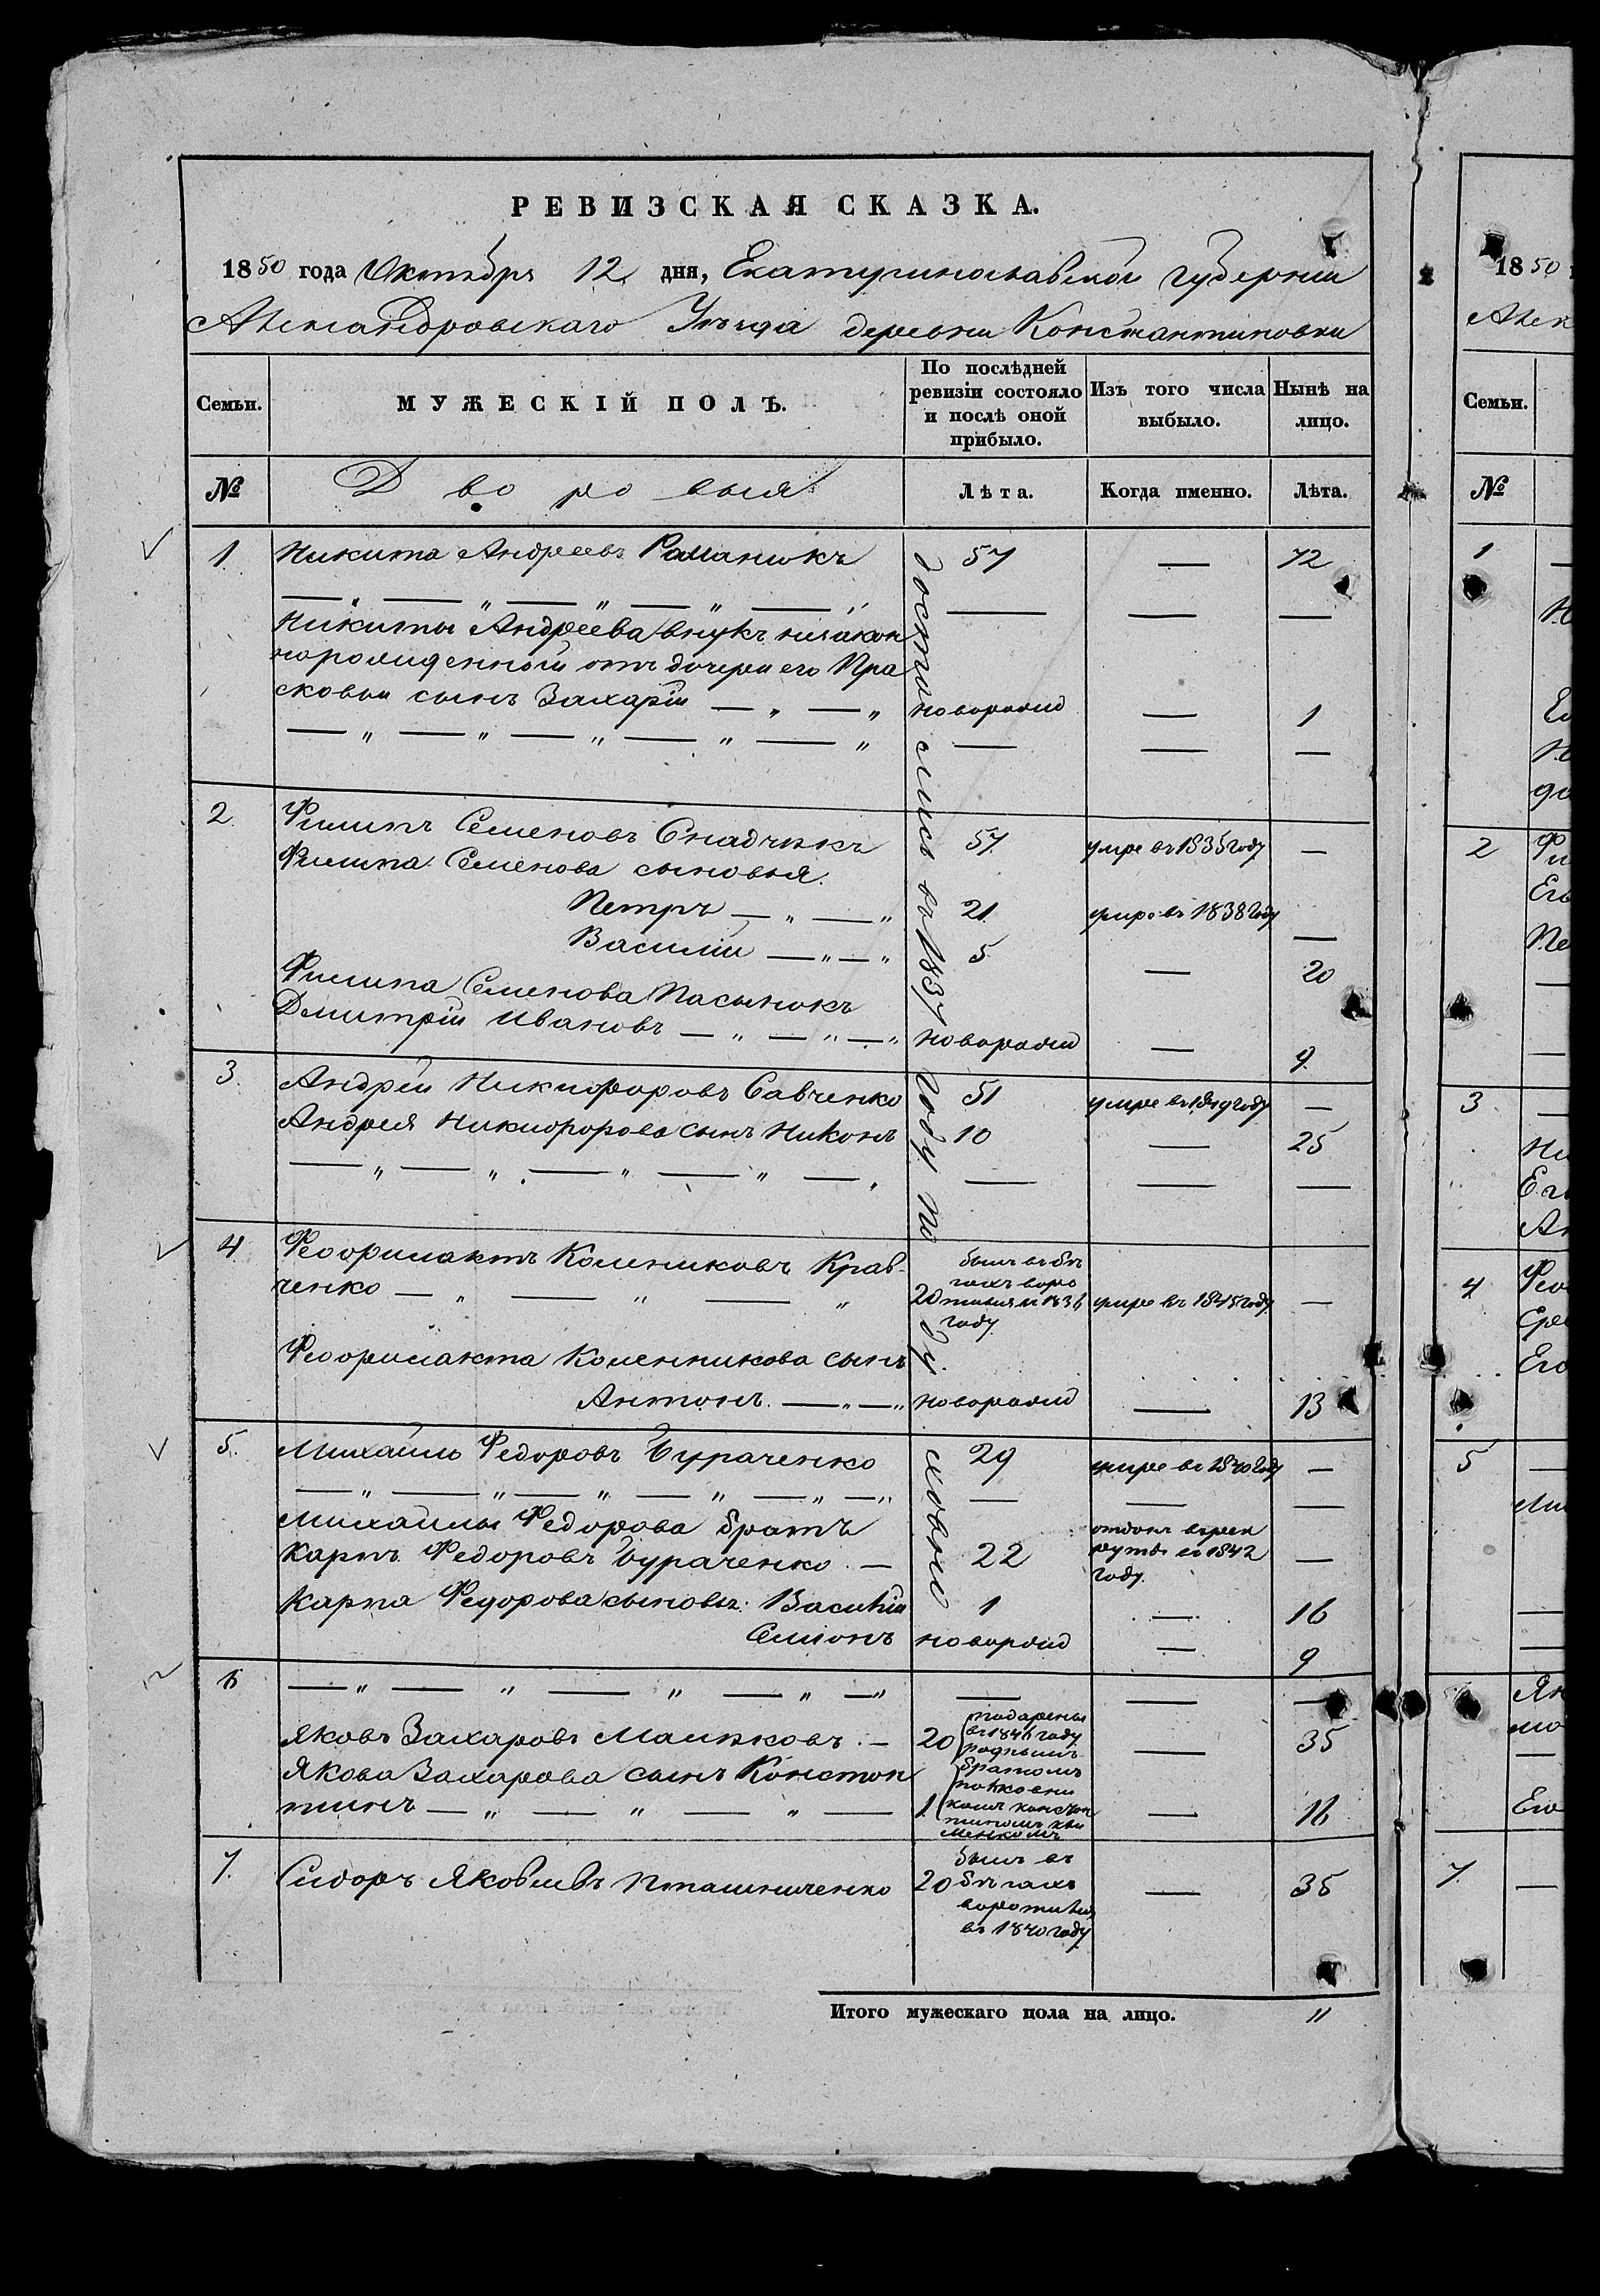 РЕВИЗСКАЯ СКАЗКА.
1850 года Октября 12 дня, Екатеринославской губернии
Александровскаго Уѣзда деревни Константиновки
Семьи.
МУЖЕСКІЙ ПОЛЪ.
По послѣдней ревизіи состояло и послѣ оной прибыло.
Изъ того числа выбыло.
Нынѣ на лицо.
№ Дворовыя Лѣта. Когда именно. Лѣта.
1 Никита Андреевъ Романюкъ 57 — 72
Никиты Андреева внукъ незакон
норожденной отъ дочери его Пра
сковьи сынъ Захарій — „ — „ новорожд — 1
2. Филипъ Семеновъ 57. умре въ 1835 году —
Филипа Семенова сыновья.
Петръ — „ — „ 21. умре въ 1838 году —
Василій — „ — „ 5. — 20
Филипа Семенова Пасынокъ
Дмитрій Ивановъ — „ — „ — „ новорожд — 9.
3. Андрей Никифоровъ Савченко 51 умре въ 1849 году —
Андрея Никифорова сынъ Никонъ 10 — 25
4. Феофилактъ Колениковъ Крав-
ченко — „ — „ — „ 20 былъ въ бѣ
гахъ воро
тился въ 1836
году. умре въ 1845 году. —
Феофилакта Коленникова сынъ
Антонъ. — „ — „ новорожд — 13
5. Михайло Федоровъ Бураченко 29 умре въ 1840 году —
Михайлы Федорова братъ
Карпъ Федоровъ Бураченко. — 22 отданъ въ рек
руты въ 1842
году. —
Карпа Федорова сыновья: Василій 1 — 16
Семіонъ новорожд — 9
6
Яковъ Захаровъ — 20 — 35
Якова Захарова сынъ Констан
тинъ — „ — „ — „ — 1. — 16
подарены
въ 1846 году
роднымъ
братомъ
полковни
комъ констан
тиномъ
7. Сидоръ Яковлевъ Пташниченко 20 былъ въ
бѣгахъ
воротился
въ 1840 году — 35
достались въ 1837 году по
Итого мужескаго пола на лицо. 11
1850
Алек
Семьи.
№
1
Н
Ео
2 Фи
Его
Пе
3
Ни
Его
Ан
4 Фео
Его
5
Ми
Як
Его
7.